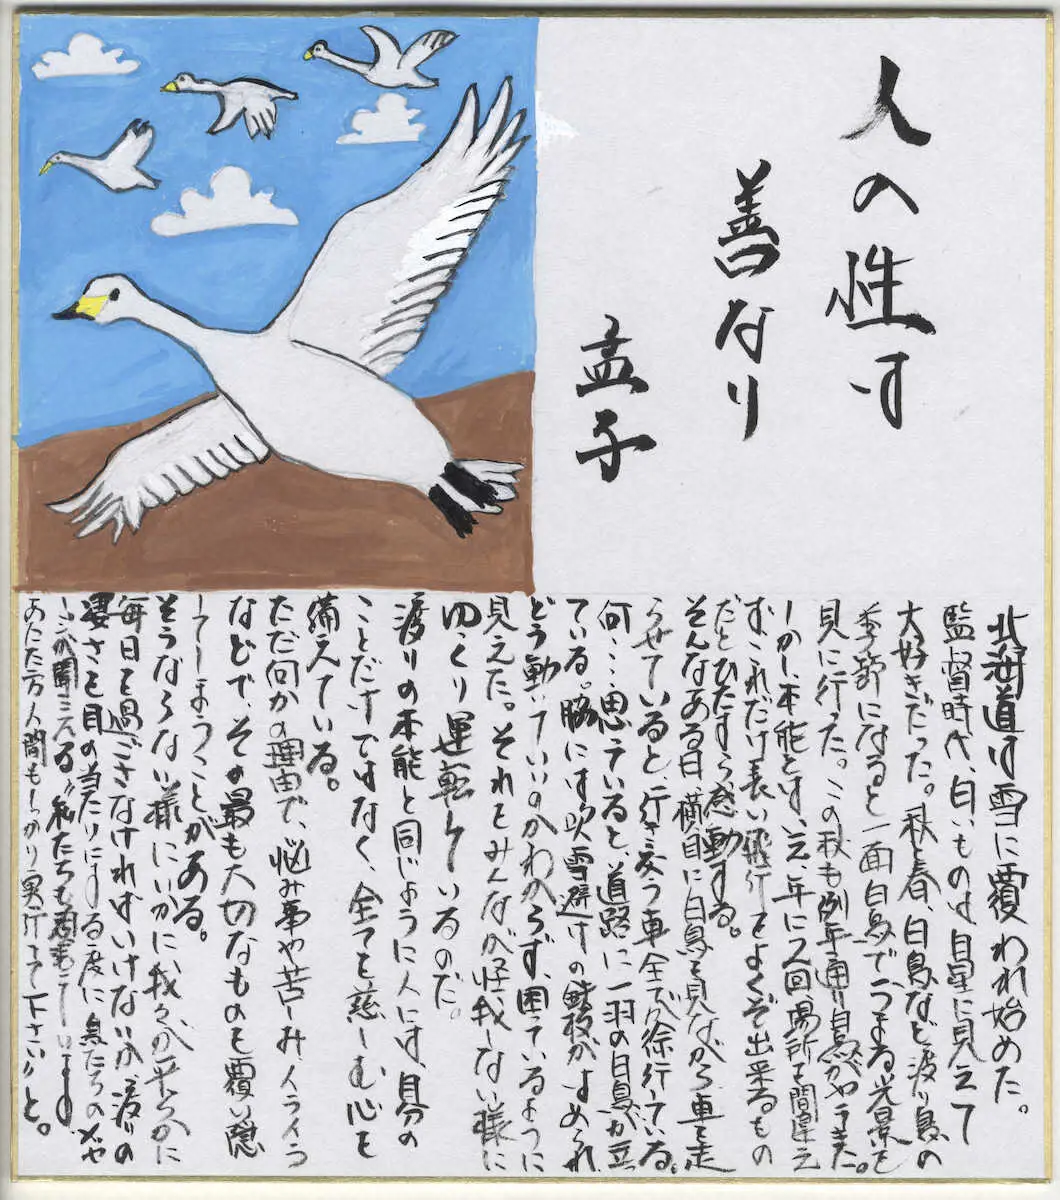 人の性は
善なり
孟子
北海道は雪に覆われ始めた。
監督時代、白いものは目星に見えて
大好きだった。秋と春、白鳥など渡り鳥の
季節になると一面白鳥でうまる光景を
見に行った。この秋も例年通り鳥がやってきた。
しかし、本能とは、年に2回場所を間違え
ず、これだけ長い飛行をよくぞ出来るもの
だとひたすら感動する。
そんなある日、横目に白鳥を見ながら車を走
らせていると、行き交う車全てが徐行している。
何…思っていると道路に一羽の白鳥が立
っている。脇には吹雪避けの鉄板がはめられ
どう動いていいのかわからず、困っているように
見えた。それをみんなが怪我しない様に
ゆっくり運転しているのだ。
渡りの本能と同じように人には、自分の
ことだけではなく、全てを慈しむ心を
備えている。
ただ何かの理由で、悩み事や苦しみイライラ
などで、その最も大切なものを覆い隠
してしまうことがある。
そうならない様にいかに我々が平らかに
毎日を過ごさなければいけないか、渡りの
凄さを目の当たりにする度に鳥たちのメッセ
ージが聞こえる"私たちも ています。
あなた方人間もしっかり実行して下さい"と。